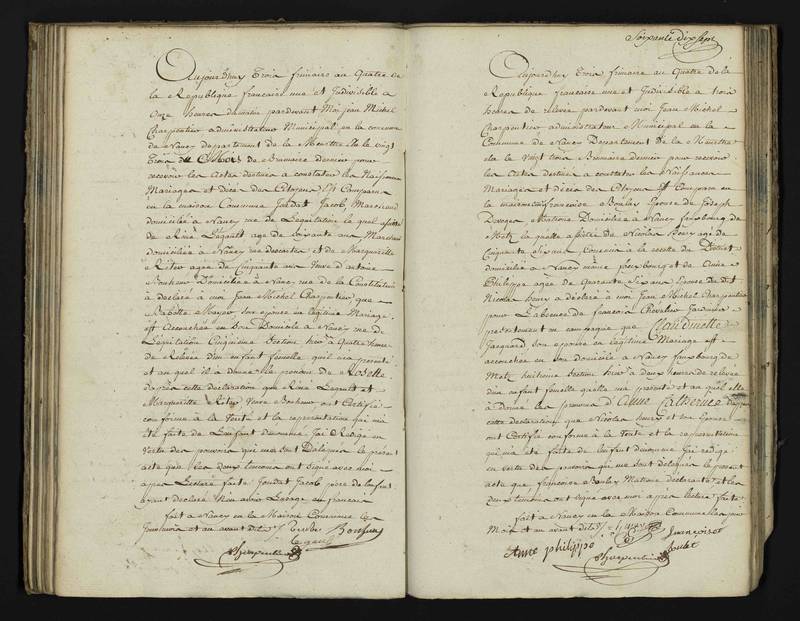 Aujourd'huy Trois frimaire an Quatre de
la République française une et Indivisible a
Onze heures du matin pardevant Moi jean Michel
Charpentier administrateur Municipal en la commune
de Nancy departement de la Meurthe élu le vingt
Trois de Brumaire dernier pour
recevoir les Actes destinés a constater les Naissances
Mariages et décès des Citoyens Est Comparu
en la maison Commune Joudat Jacob Marchand
domicilié a Nancy rue de L'egalité le quel assisté
de Rémé Legault agé de soixante ans Marchand
domicilié a Nancy rue descartes et de Marguerite
agée de Cinquante ans Veuve d'antoine
Bonheur Domiciliée a Nancy rue de la Constitution
a déclaré a moi Jean Michel Charpentier que
Babette Mayer son epouse en légitime Mariage
est accouchée en son Domicile a Nancy rue de
Législation Cinquieme Section hier a Quatre heures
de Relevée d'un enfant femelle quil m'a presenté
et au quel il a donné le prenom de Rosette
dapres cette declaration que Rémé Legault et
Marguerite Veuve Bonheur ont Certifié
conforme à la Verité et la representation qui m'a
été faite de L'enfant denommé Jai Rédigé en
Vertu des pouvoirs qui me sont Délégués le present
acte que les deux temoins ont signé avec moi
apres Lecture faite Joudat Jacob père de l'enfant
ayant declaré Non avoir L'usage du francais
fait a Nancy en la Maison Commune les
Jour mois et an avant dits
Legault
Charpentier
Soixante dix sept
Aujourd'huy Trois frimaire an Quatre de la
République française une et Indivisible a trois
heures de relevée pardevant moi Jean Michel
Charpentier administrateur Municipal en la
Commune de Nancy Departement de la Meurthe
élu le vingt trois Brumaire dernier pour recevoir
les Actes destinés a constater les Naissances
Mariages et décès des Citoyens est Comparu en
la maison Commune francoise Boulet Epouse de Joseph
Matrone Domiciliée a Nancy fauxbourg de
Metz la quelle assistée de Nicolas Henry agé de
Cinquante six ans
domicilié a Nancy même fauxbourg et de Anne
Philippe agée de Quarante six ans Epouse du dit
Nicolas henry a déclaré a moi Jean Michel Charpentier
pour L'absence de francois Chevalier
que Claudinette
Jacquard son epouse en legitime Mariage est
accouchée en son domicile a Nancy fauxbourg de
Metz huitieme Section hier a deux heures de relevée
d'un enfant femelle quelle m'a presenté et au quel elle
a donné les prenoms d'Anne Catherine d'apres
cette declaration que Nicolas henry et son Epouse
ont Certifié conforme à la Verité et la representation
qui m'a été faite de L'enfant denommé Jai rédigé
en vertu des pouvoirs qui me sont délégués le present
acte que francoise Boulet Matrone déclarante et les
deux temoins ont signé avec moi apres lecture faite
fait a Nancy en la Maison Commune les jour
Mois et an avant dits
Anne philippe
françoise
Boulet
Charpentier